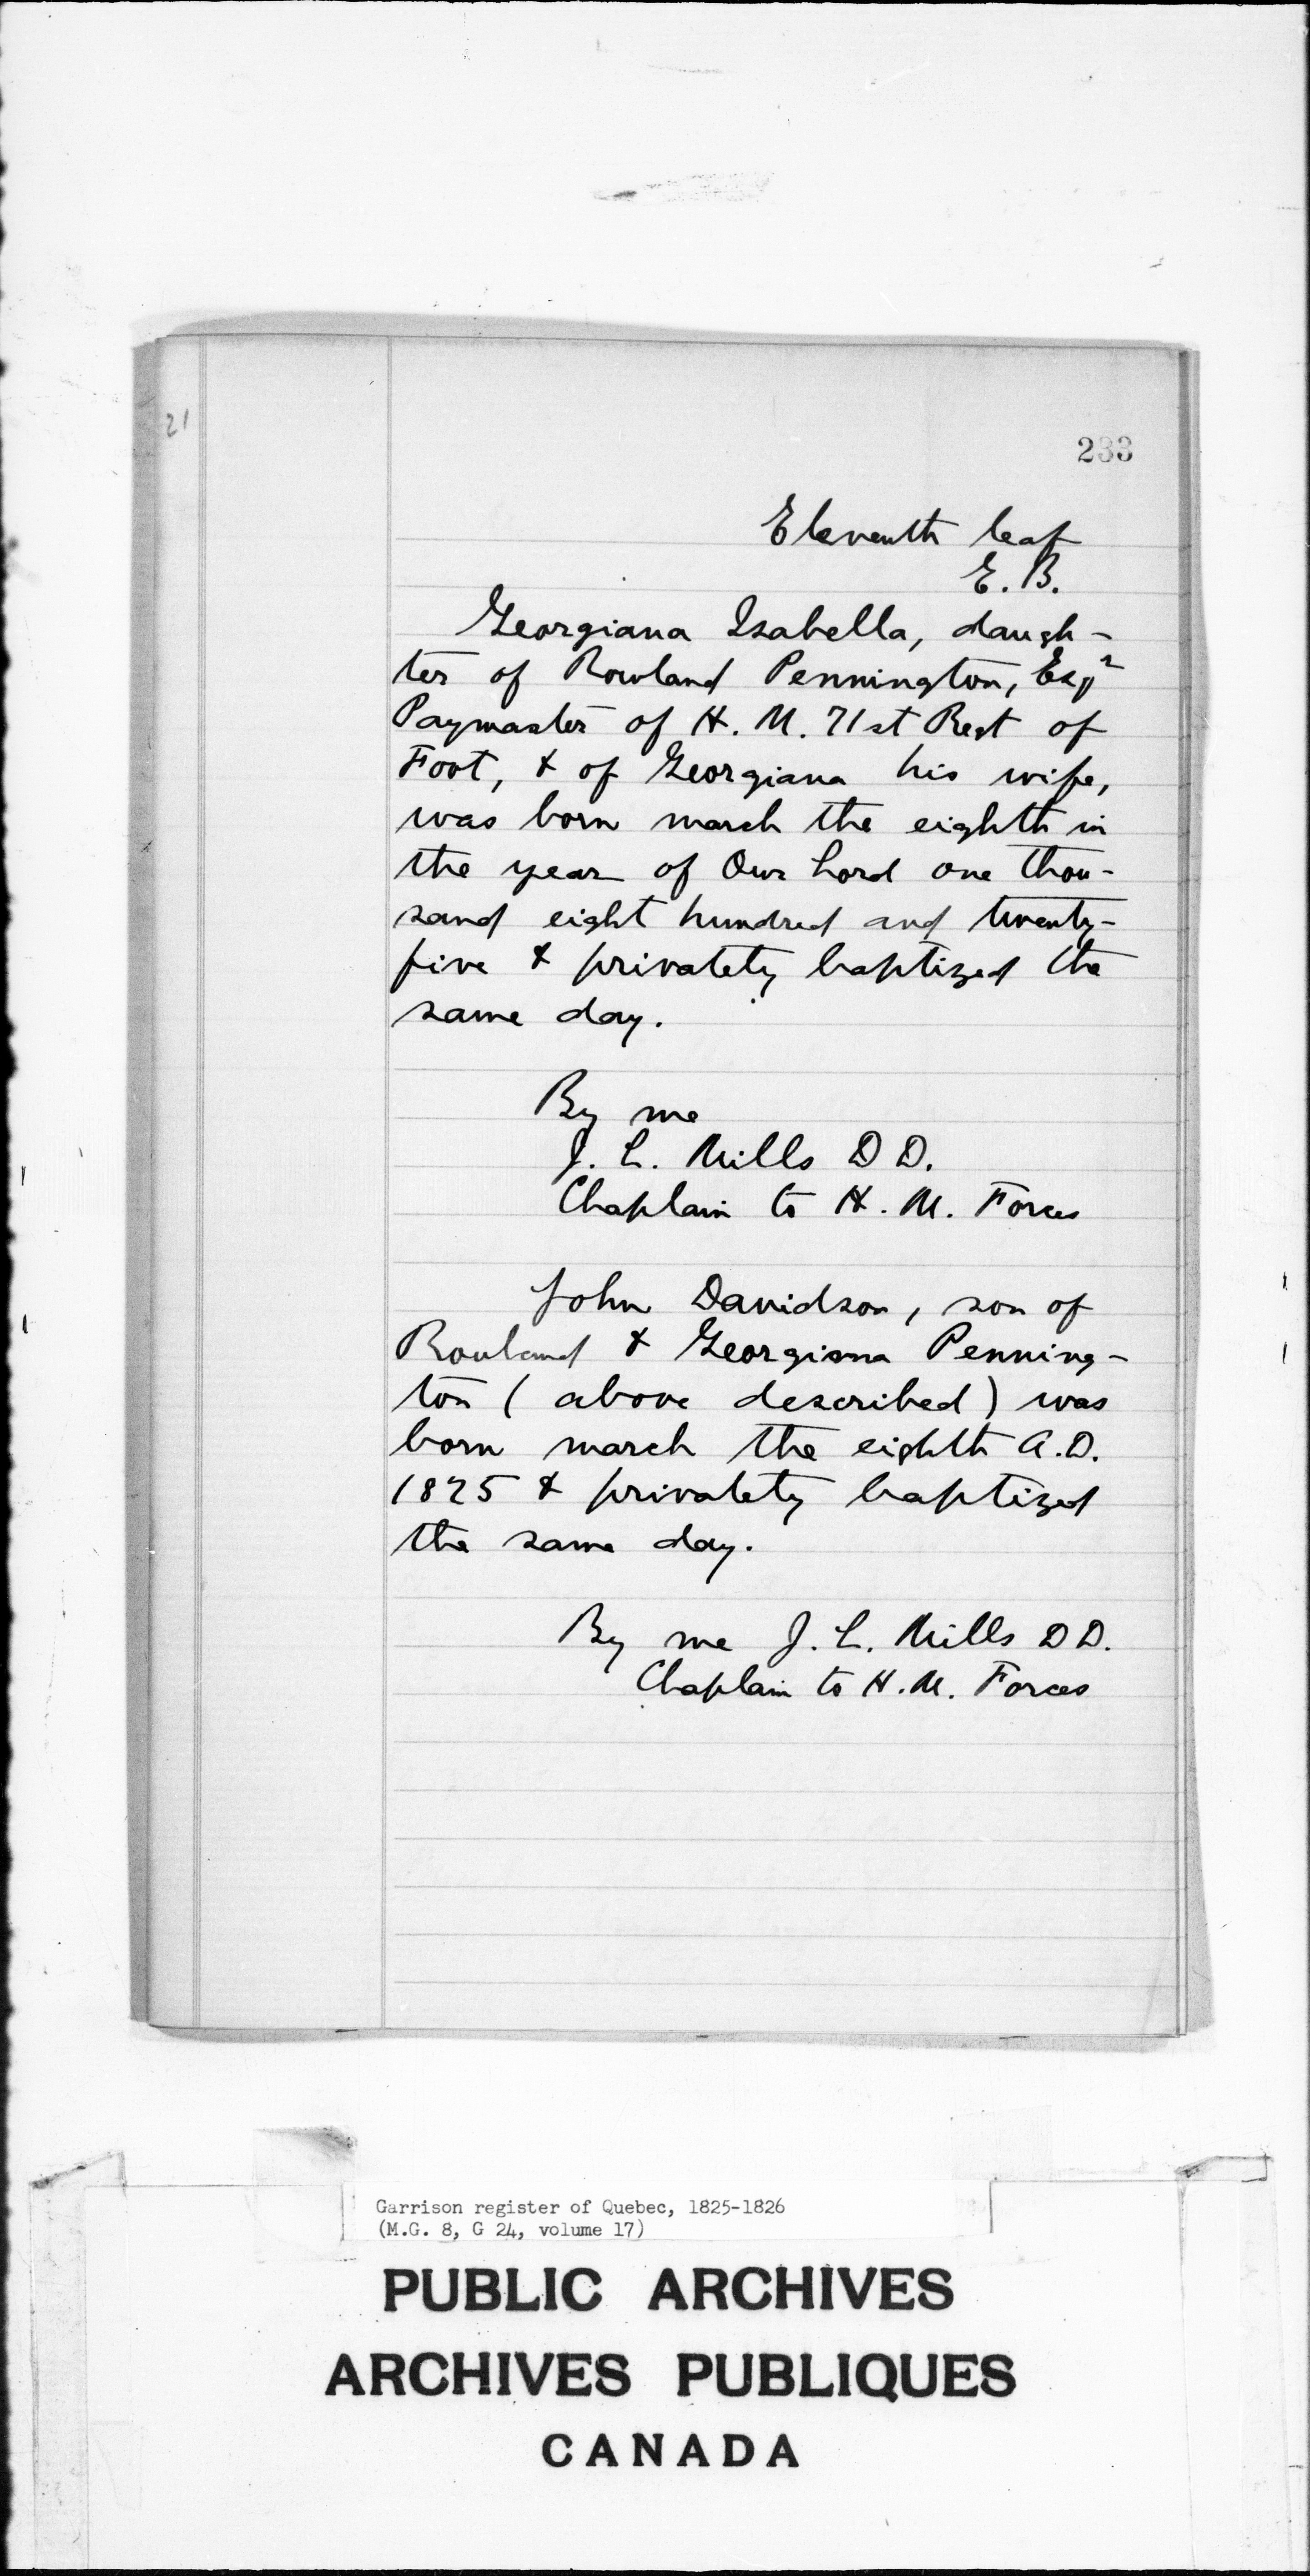 21
233
Eleventh leaf
E. B.
Georgiana Isabella, daugh-
ter of Rowland Pennington, Esqr
Paymaster of H. M. 71st Regt of
Foot, & of Georgiana his wife,
was born march the eighth in
the year of Our Lord one thou-
sand eight hundred and twenty-
five & privately baptized the
same day.
By me
J. L. Mills D D.
Chaplain to H. M. Forces
John Davidson, son of
Rowland & Georgiana Penning-
ton (above described) was
born march the eighth A.D.
1825 & privately baptized
the same day.
By me J. L. Mills D D.
Chaplain to H. M. Forces
Garrison register of Quebec, 1825-1826
(M.G. 8, G 24, volume 17)
PUBLIC ARCHIVES
ARCHIVES PUBLIQUES
CANADA